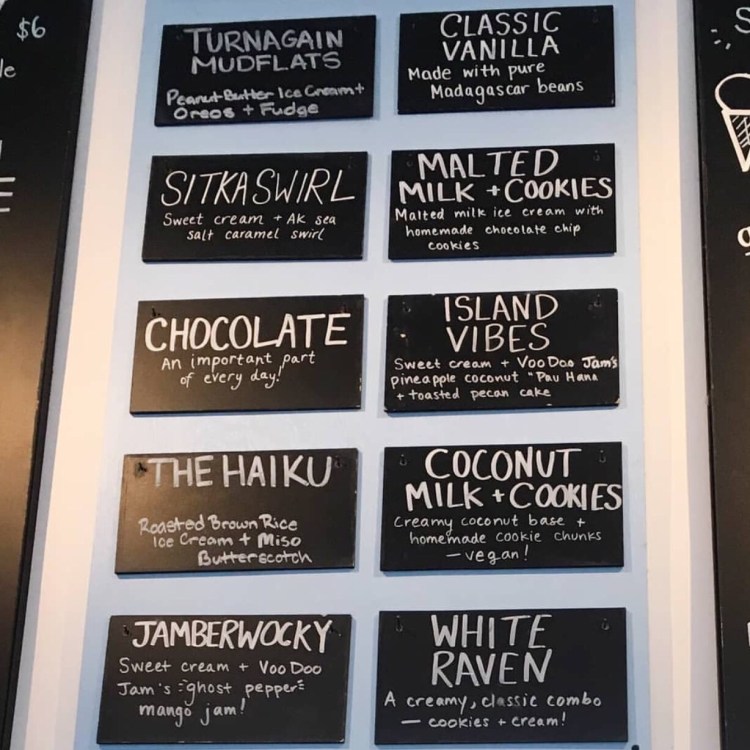 $6
TURNAGAIN
MUDFLATS
Peanut Butter Ice Cream +
Oreos + Fudge
CLASSIC
VANILLA
Made with pure
Madagascar beans
SITKA SWIRL
Sweet cream + AK sea
salt caramel swirl
MALTED
MILK + COOKIES
Malted milk ice cream with
homemade chocolate chip
cookies
CHOCOLATE
An important part
of every day!
ISLAND
VIBES
Sweet cream + VooDoo Jam's
pineapple coconut "Pau Hana
+ toasted pecan cake
THE HAIKU
Roasted Brown Rice
Ice Cream + Miso
Butterscotch
COCONUT
MILK + COOKIES
Creamy coconut base +
homemade cookie chunks
- vegan!
JAMBERWOCKY
Sweet cream + VooDoo
Jam's ghost pepper
mango jam!
WHITE
RAVEN
A creamy, classic combo
- cookies + cream!